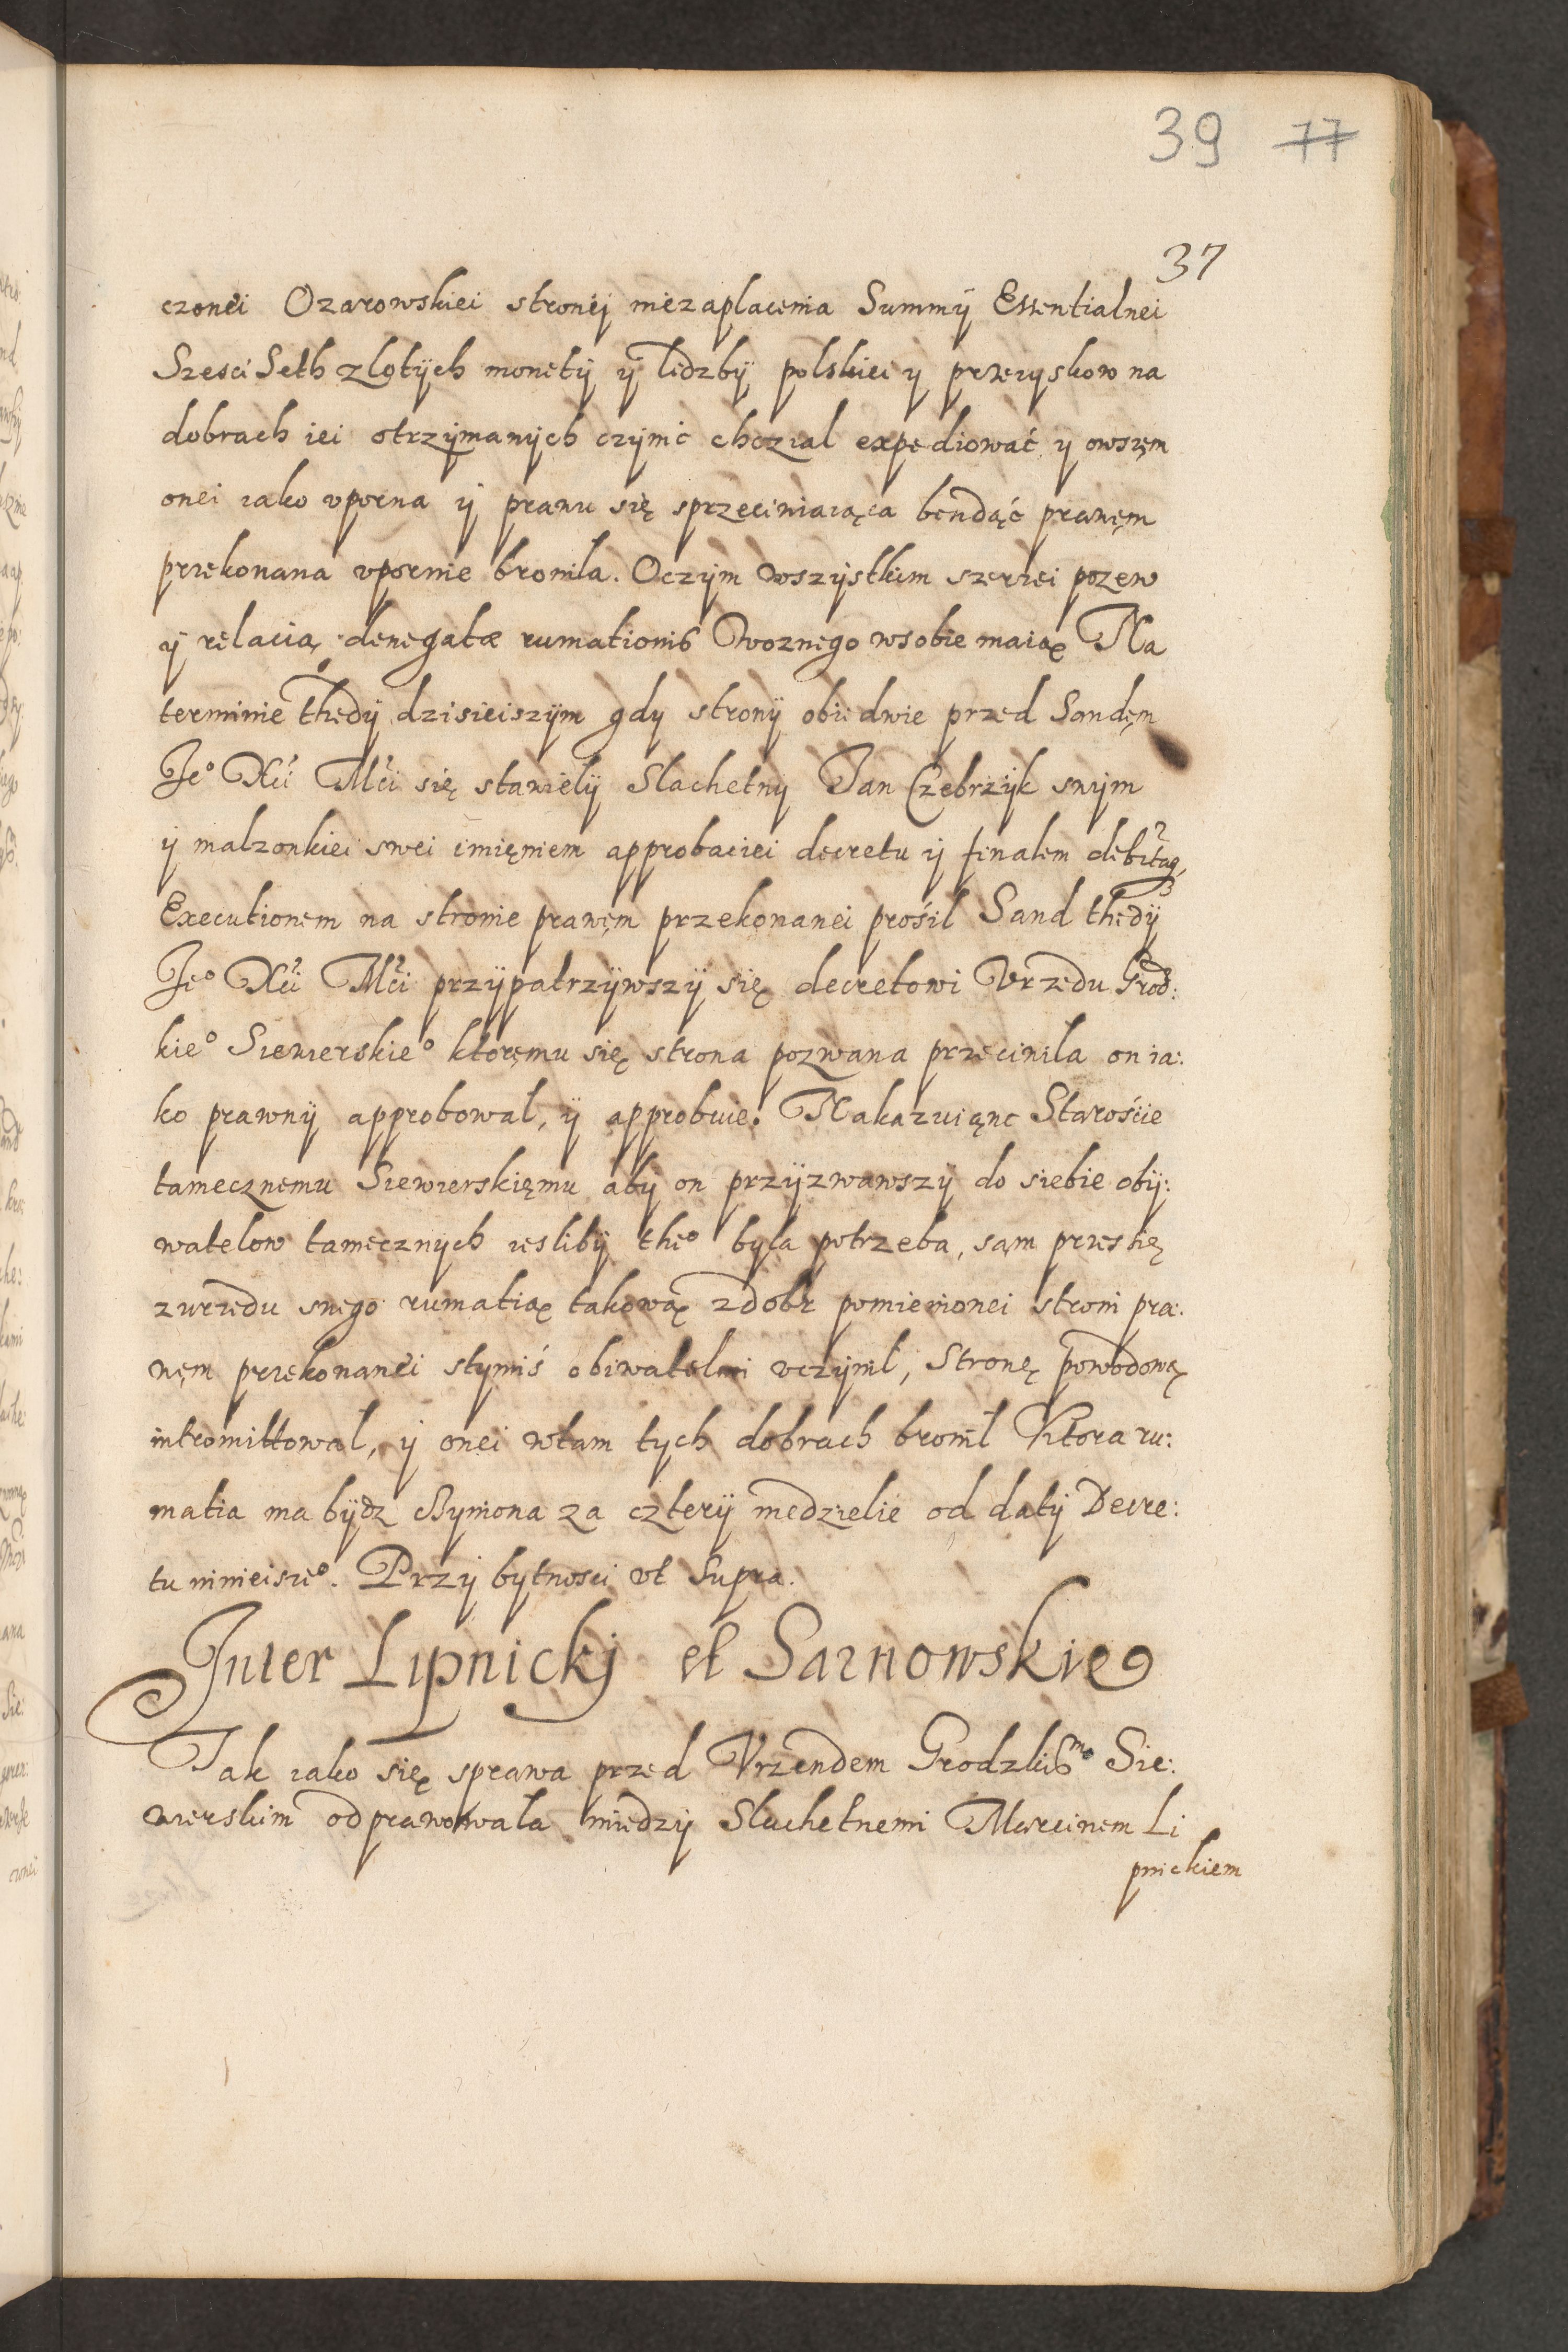 39 77
37
czonei Ozarowskiei stronij niezaplacenia Summÿ Essentialnei
Szesci Seth zlotÿch monetÿ ÿ lidzbÿ polskiei y przezyskow na
dobrach iei otrzÿmanÿch czÿnić chczial expediować y owszęm
onei iako vporna ÿ prawu się sprzeciwiaiąca bendąć prawęm
przekonana vpornie bronila. Oczÿm wszÿstkim szerzei pozew
ÿ relacią denegatæ rumationis Woznego wsobie maią Na
terminie thedÿ dzisieiszÿm gdy stronÿ obiedwie przed Sandęm
Je° Xci Mci się stawielÿ Slachetnÿ Jan Czebrzÿk swÿm
ÿ malzonkiei swei imięniem approbaciei decretu ÿ finalem debitaq,
Executionem na stronie prawęm przekonanei prośil Sand thedÿ
Je° Xci Mci przÿpatrzÿwszÿ się decretowi Vrzedu Grod:
kie° Siewierskie° ktoręmu się strona pozwana przeciwila on ia:
ko prawnÿ approbowal, ÿ approbuie. Nakazuiąnc Starośćie
tamecznemu Siewierskięmu abÿ on przÿzwawszÿ do siebie obÿ:
watelow tamecznÿch ieslibÿ the° byla potrzeba, sam przeshę
zurzedu swego rumatią takową zdobr pomienionei stroni pra:
węm przekonanei stymiś obiwatelmi vczÿnil, Stronę powodową
intromittowal, ÿ onei wtam tych dobrach bronil Ktora ru:
matia ma bÿdz czynona za czterÿ niedzielie od datÿ Decre:
tu ninieisze°. Przÿ bytnosci vt Supra.
Inter Lipnickj et Sarnowskie
Tak iako się sprawa przed Vrzendem Grodzkim Sie:
wierskim odprawowala miedzÿ Slachetnemi Marcinem Li
pnickiem